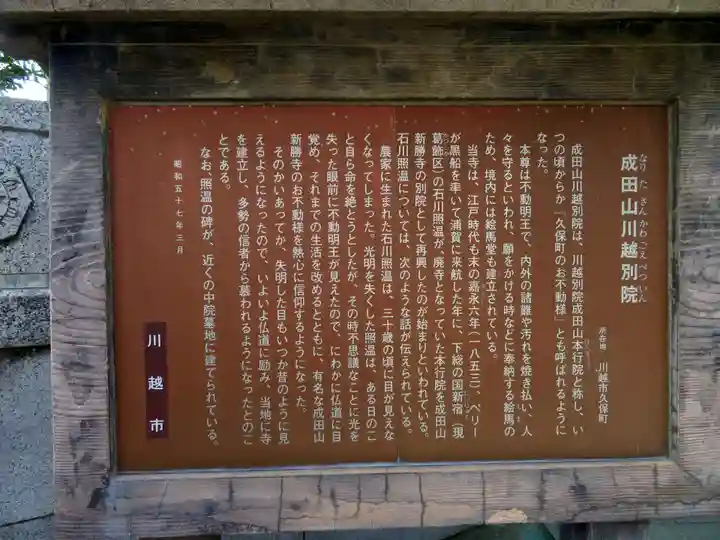 成田山川越別院
なりたさんかわごえべついん
所在地 川越市久保町
成田山川越別院は、川越別院成田山本行院と称し、い
つの頃からか『久保町のお不動様』とも呼ばれるように
なった。
本尊は不動明王で、内外の諸難や汚れを焼き払い、人
々を守るといわれ、願をかける時などに奉納する絵馬の
ため、境内には絵馬堂も建立されている。
当寺は、江戸時代も末の嘉永六年(一八五三)、ペリー
が黒船を率いて浦賀に来航した年に、下総の国新宿(現
葛飾区)の石川照温が、廃寺となっていた本行院を成田山
新勝寺の別院として再興したのが始まりといわれている。
石川照温については、次のような話が伝えられている。
農家に生まれた石川照温は、三十歳の頃に目が見えな
くなってしまった。光明を失くした照温は、ある日のこ
と自ら命を絶とうとしたが、その時不思議なことに光を
失った眼前に不動明王が見えたので、にわかに仏道に目
覚め、それまでの生活を改めるとともに、有名な成田山
新勝寺のお不動様を熱心に信仰するようになった。
そのかいあってか、失明した目もいつか昔のように見
えるようになったので、いよいよ仏道に励み、当地に寺
を建立し、多勢の信者から慕われるようになったとのこ
とである。
なお、照温の碑が、近くの中院墓地に建てられている。
昭和五十七年三月
川越市